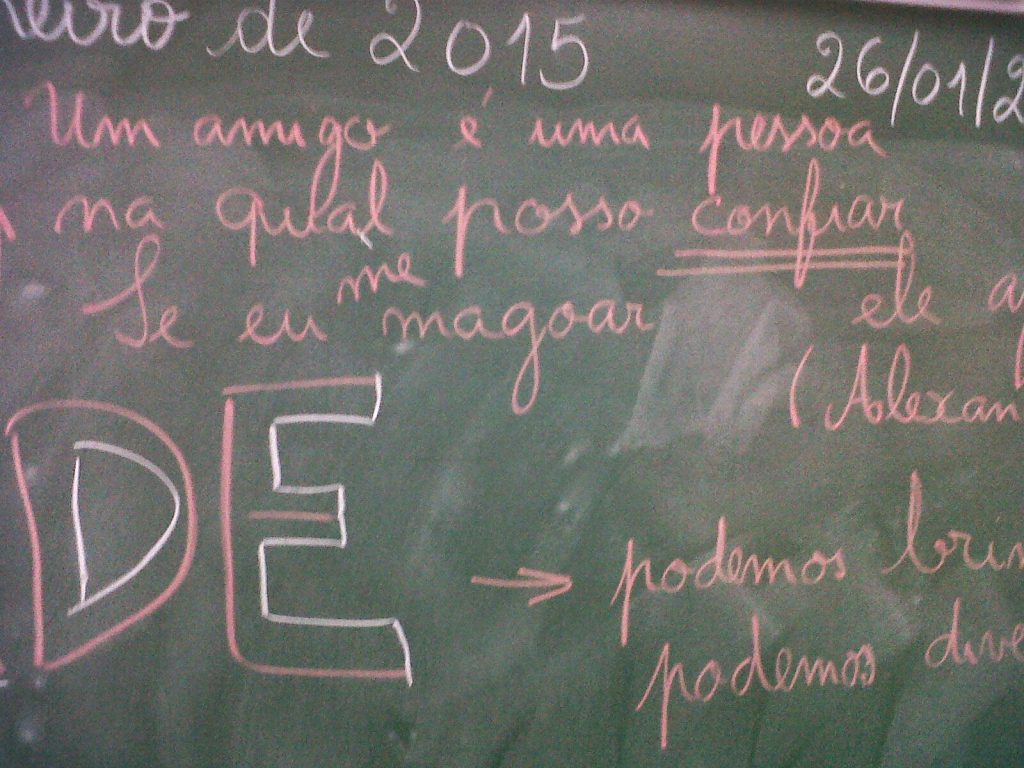 de 2015 26/01/2
Um amigo é uma pessoa
na qual posso confiar
Se eu me magoar ele
(Alexan
DE
podemos brin
podemos dive